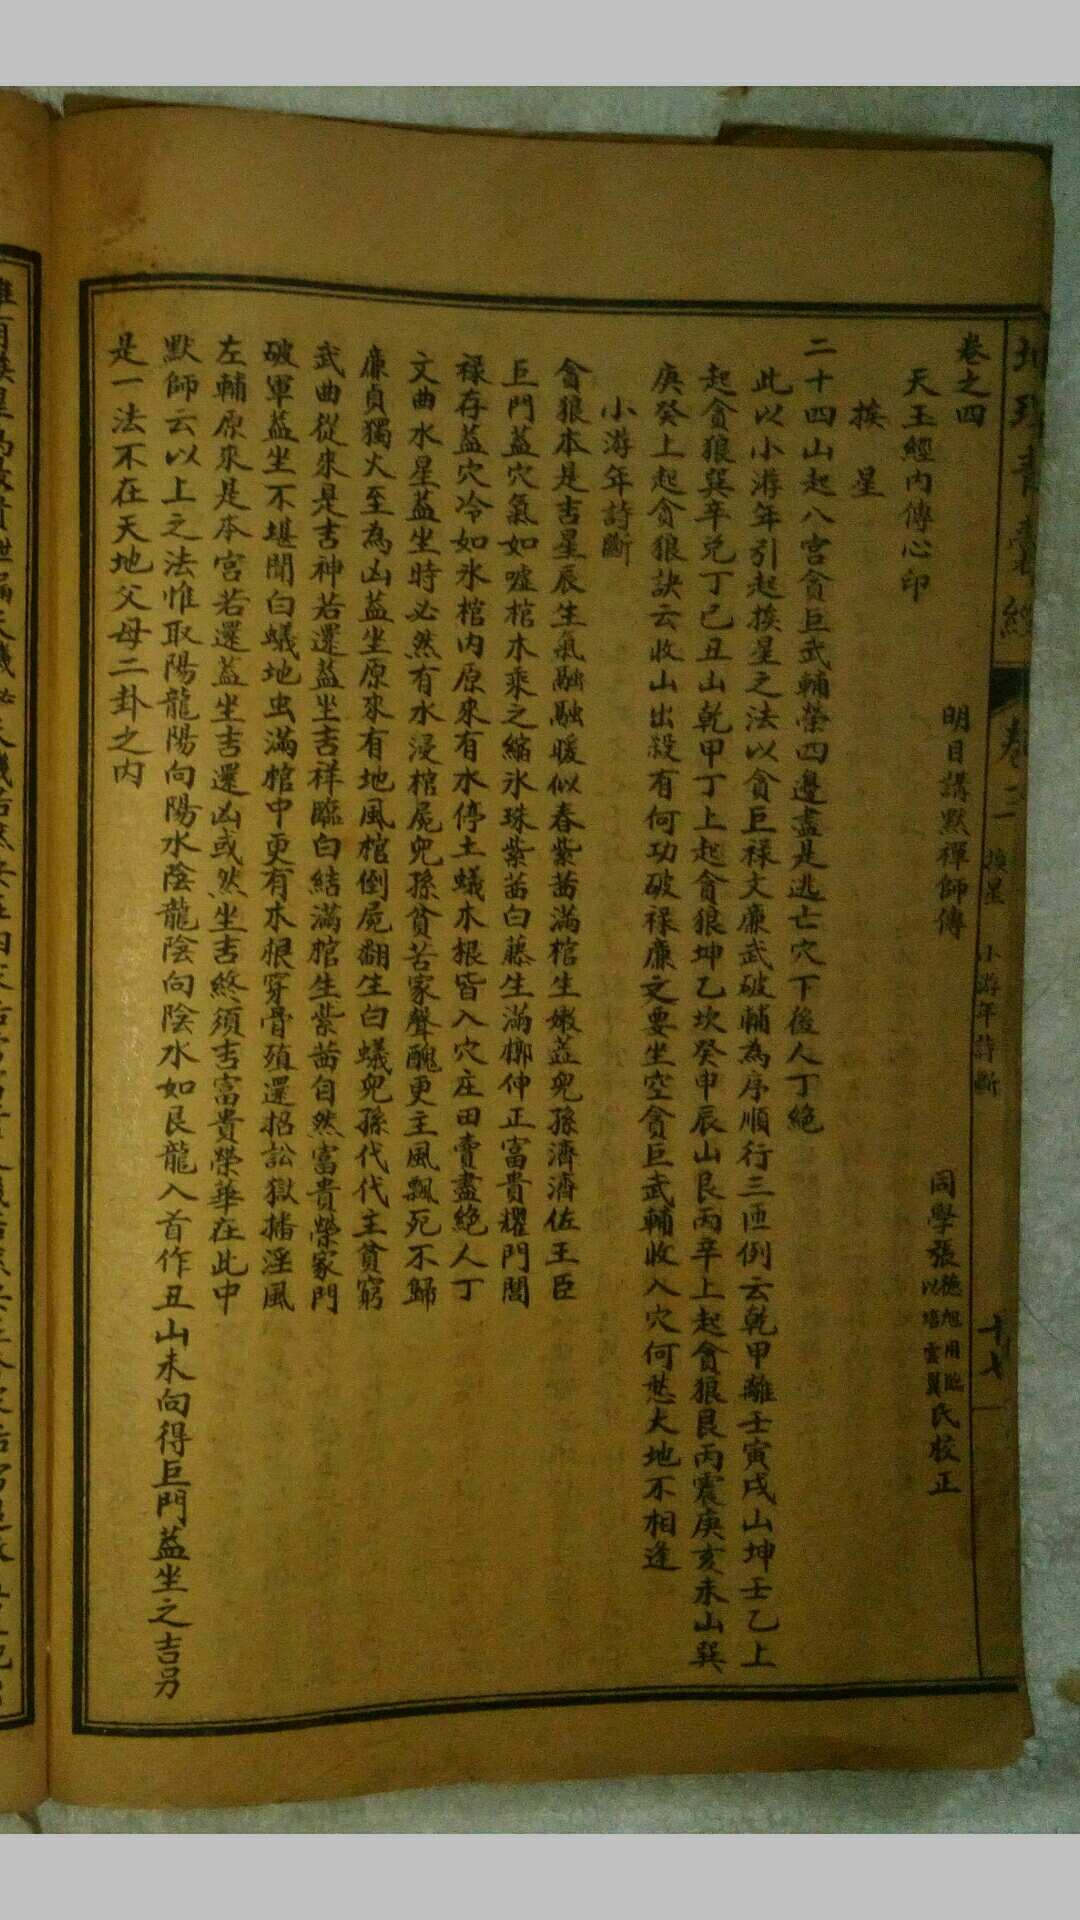 卷之四
天玉經內傳心印
明目講默禪師傳
同學張德旭用臨以培雲翼氏校正
挨星
二十四山起八宮貪巨武輔榮四邊盡是逃亡穴下後人丁絕
此以小游年引起挨星之法以貪巨祿文廉武破輔為序順行三匝例云乾甲離壬寅戌山坤壬乙上
起貪狼巽辛兌丁巳丑山乾甲丁上起貪狼坤乙坎癸申辰山艮丙辛上起貪狼艮丙震庚亥未山巽
庚癸上起貪狼訣云收山出殺有何功破祿廉文要坐空貪巨武輔收入穴何愁大地不相逢
小游年詩斷
貪狼本是吉星辰生氣融融暖似春紫茜滿棺生嫩蕋兒孫濟濟佐王臣
巨門葢穴氣如噓棺木乘之縮氷珠紫茜白藤生滿槨仲正富貴耀門閭
祿存葢穴冷如氷棺內原來有水停土蟻木根皆入穴庄田賣盡絶人丁
文曲水星葢坐時必然有水浸棺屍兒孫貧苦家聲醜更主風飄死不歸
廉貞獨火至為凶葢坐原來有地風棺倒屍翻生白蟻兒孫代代主貧窮
武曲從來是吉神若還葢坐吉祥臨白結滿棺生紫茜自然富貴榮家門
破軍葢坐不堪聞白蟻地虫滿棺中更有木根穿骨殖還招訟獄捕淫風
左輔原來是本宮若還葢坐吉還凶或然坐吉終須吉富貴榮華在此中
默師云以上之法惟取陽龍陽向陽水陰龍陰向陰水如艮龍入首作丑山未向得巨門葢坐之吉另
是一法不在天地父母二卦之內
挨星 小游年詩斷
十七